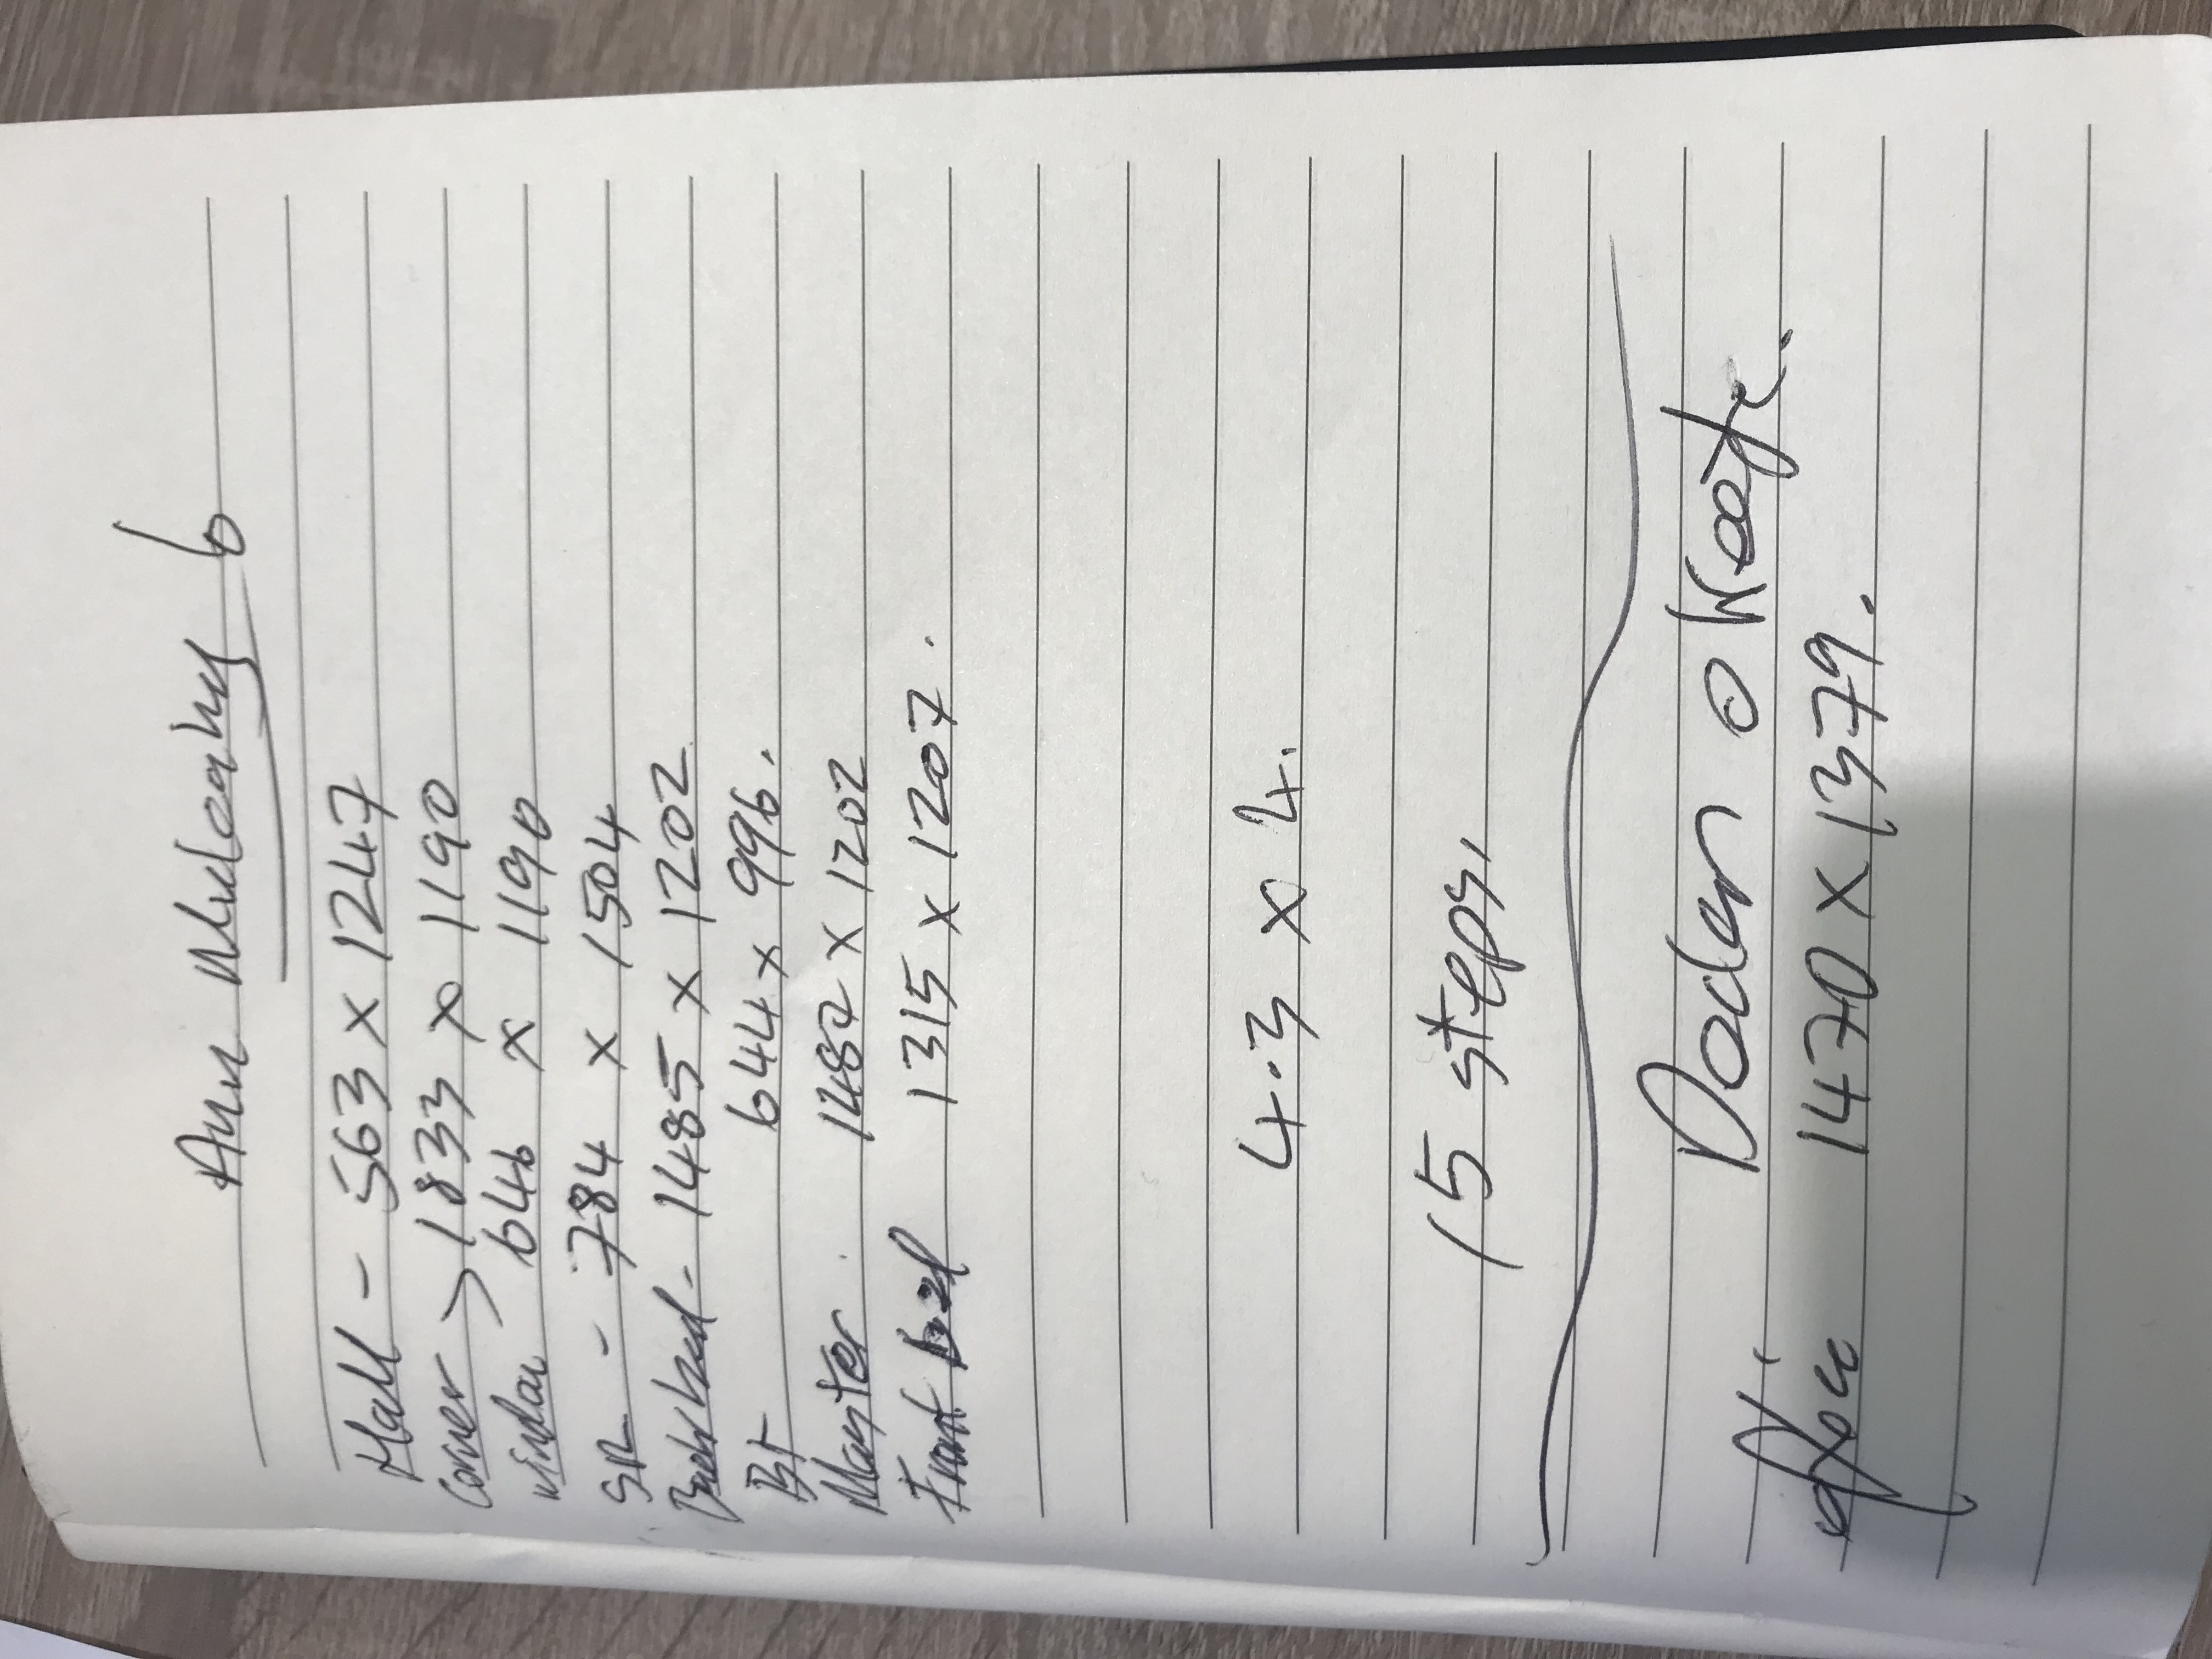 Ann Mulcahy 6
Hall - 563 x 1247
Corner > 1833 x 1190
window > 646 x 1190
SR - 784 x 1504
Back bed - 1485 x 1202
BT 644 x 996.
Master 1482 x 1202
Front bed 1315 x 1207.
4.3 x 4.
15 steps,
O Keefe.
office 1470 x 1379.